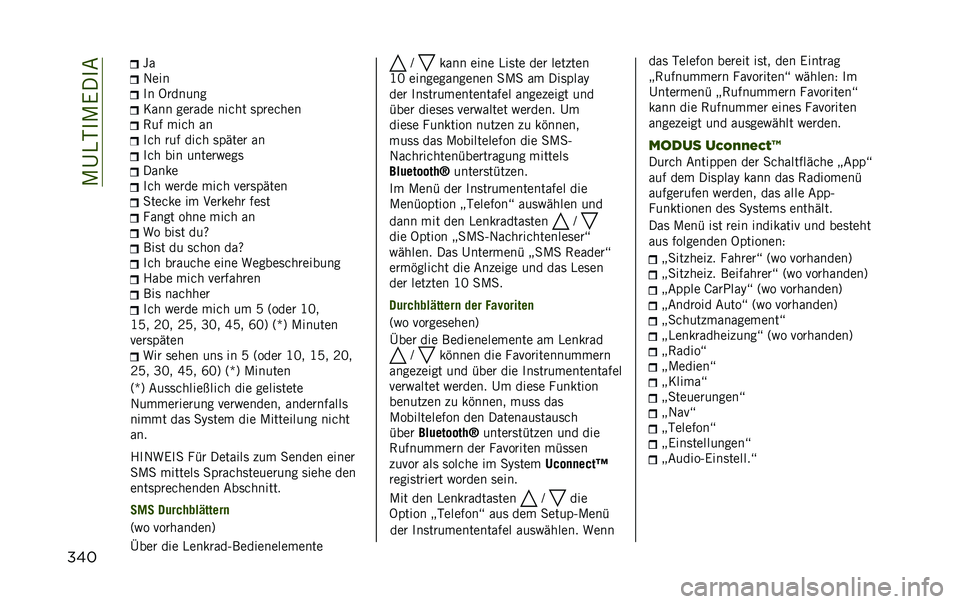 MULTIMEDIA
340
Ja
Nein
In Ordnung
Kann gerade nicht sprechen
Ruf mich an
Ich ruf dich später an
Ich bin unterwegs
Danke
Ich werde mich verspäten
Stecke im Verkehr fest
Fangt ohne mich an
Wo bist du?
Bist du schon da?
Ich brauche eine Wegbeschreibung
Habe mich verfahren
Bis nachher
Ich werde mich um 5 (oder 10,
15, 20, 25, 30, 45, 60) (*) Minuten
verspäten
Wir sehen uns in 5 (oder 10, 15, 20,
25, 30, 45, 60) (*) Minuten
(*) Ausschließlich die gelistete
Nummerierung verwenden, andernfalls
nimmt das System die Mitteilung nicht
an.
HINWEIS Für Details zum Senden einer
SMS mittels Sprachsteuerung siehe den
entsprechenden Abschnitt.
SMS Durchblättern
(wo vorhanden)
Über die Lenkrad-Bedienelemente
/ kann eine Liste der letzten
10 eingegangenen SMS am Display
der Instrumententafel angezeigt und
über dieses verwaltet werden. Um
diese Funktion nutzen zu können,
muss das Mobiltelefon die SMS-
Nachrichtenübertragung mittels
Bluetooth® unterstützen.
Im Menü der Instrumententafel die
Menüoption „Telefon“ auswählen und
dann mit den Lenkradtasten /
die Option „SMS-Nachrichtenleser“
wählen. Das Untermenü „SMS Reader“
ermöglicht die Anzeige und das Lesen
der letzten 10 SMS.
Durchblättern der Favoriten
(wo vorgesehen)
Über die Bedienelemente am Lenkrad
/ können die Favoritennummern
angezeigt und über die Instrumententafel
verwaltet werden. Um diese Funktion
benutzen zu können, muss das
Mobiltelefon den Datenaustausch
über Bluetooth® unterstützen und die
Rufnummern der Favoriten müssen
zuvor als solche im System Uconnect™
registriert worden sein.
Mit den Lenkradtasten / die
Option „Telefon“ aus dem Setup-Menü
der Instrumententafel auswählen. Wenn
das Telefon bereit ist, den Eintrag
„Rufnummern Favoriten“ wählen: Im
Untermenü „Rufnummern Favoriten“
kann die Rufnummer eines Favoriten
angezeigt und ausgewählt werden.
MODUS Uconnect™
Durch Antippen der Schaltfläche „App“
auf dem Display kann das Radiomenü
aufgerufen werden, das alle App-
Funktionen des Systems enthält.
Das Menü ist rein indikativ und besteht
aus folgenden Optionen:
„Sitzheiz. Fahrer“ (wo vorhanden)
„Sitzheiz. Beifahrer“ (wo vorhanden)
„Apple CarPlay“ (wo vorhanden)
„Android Auto“ (wo vorhanden)
„Schutzmanagement“
„Lenkradheizung“ (wo vorhanden)
„Radio“
„Medien“
„Klima“
„Steuerungen“
„Nav“
„Telefon“
„Einstellungen“
„Audio-Einstell.“
carmanualsonline.info